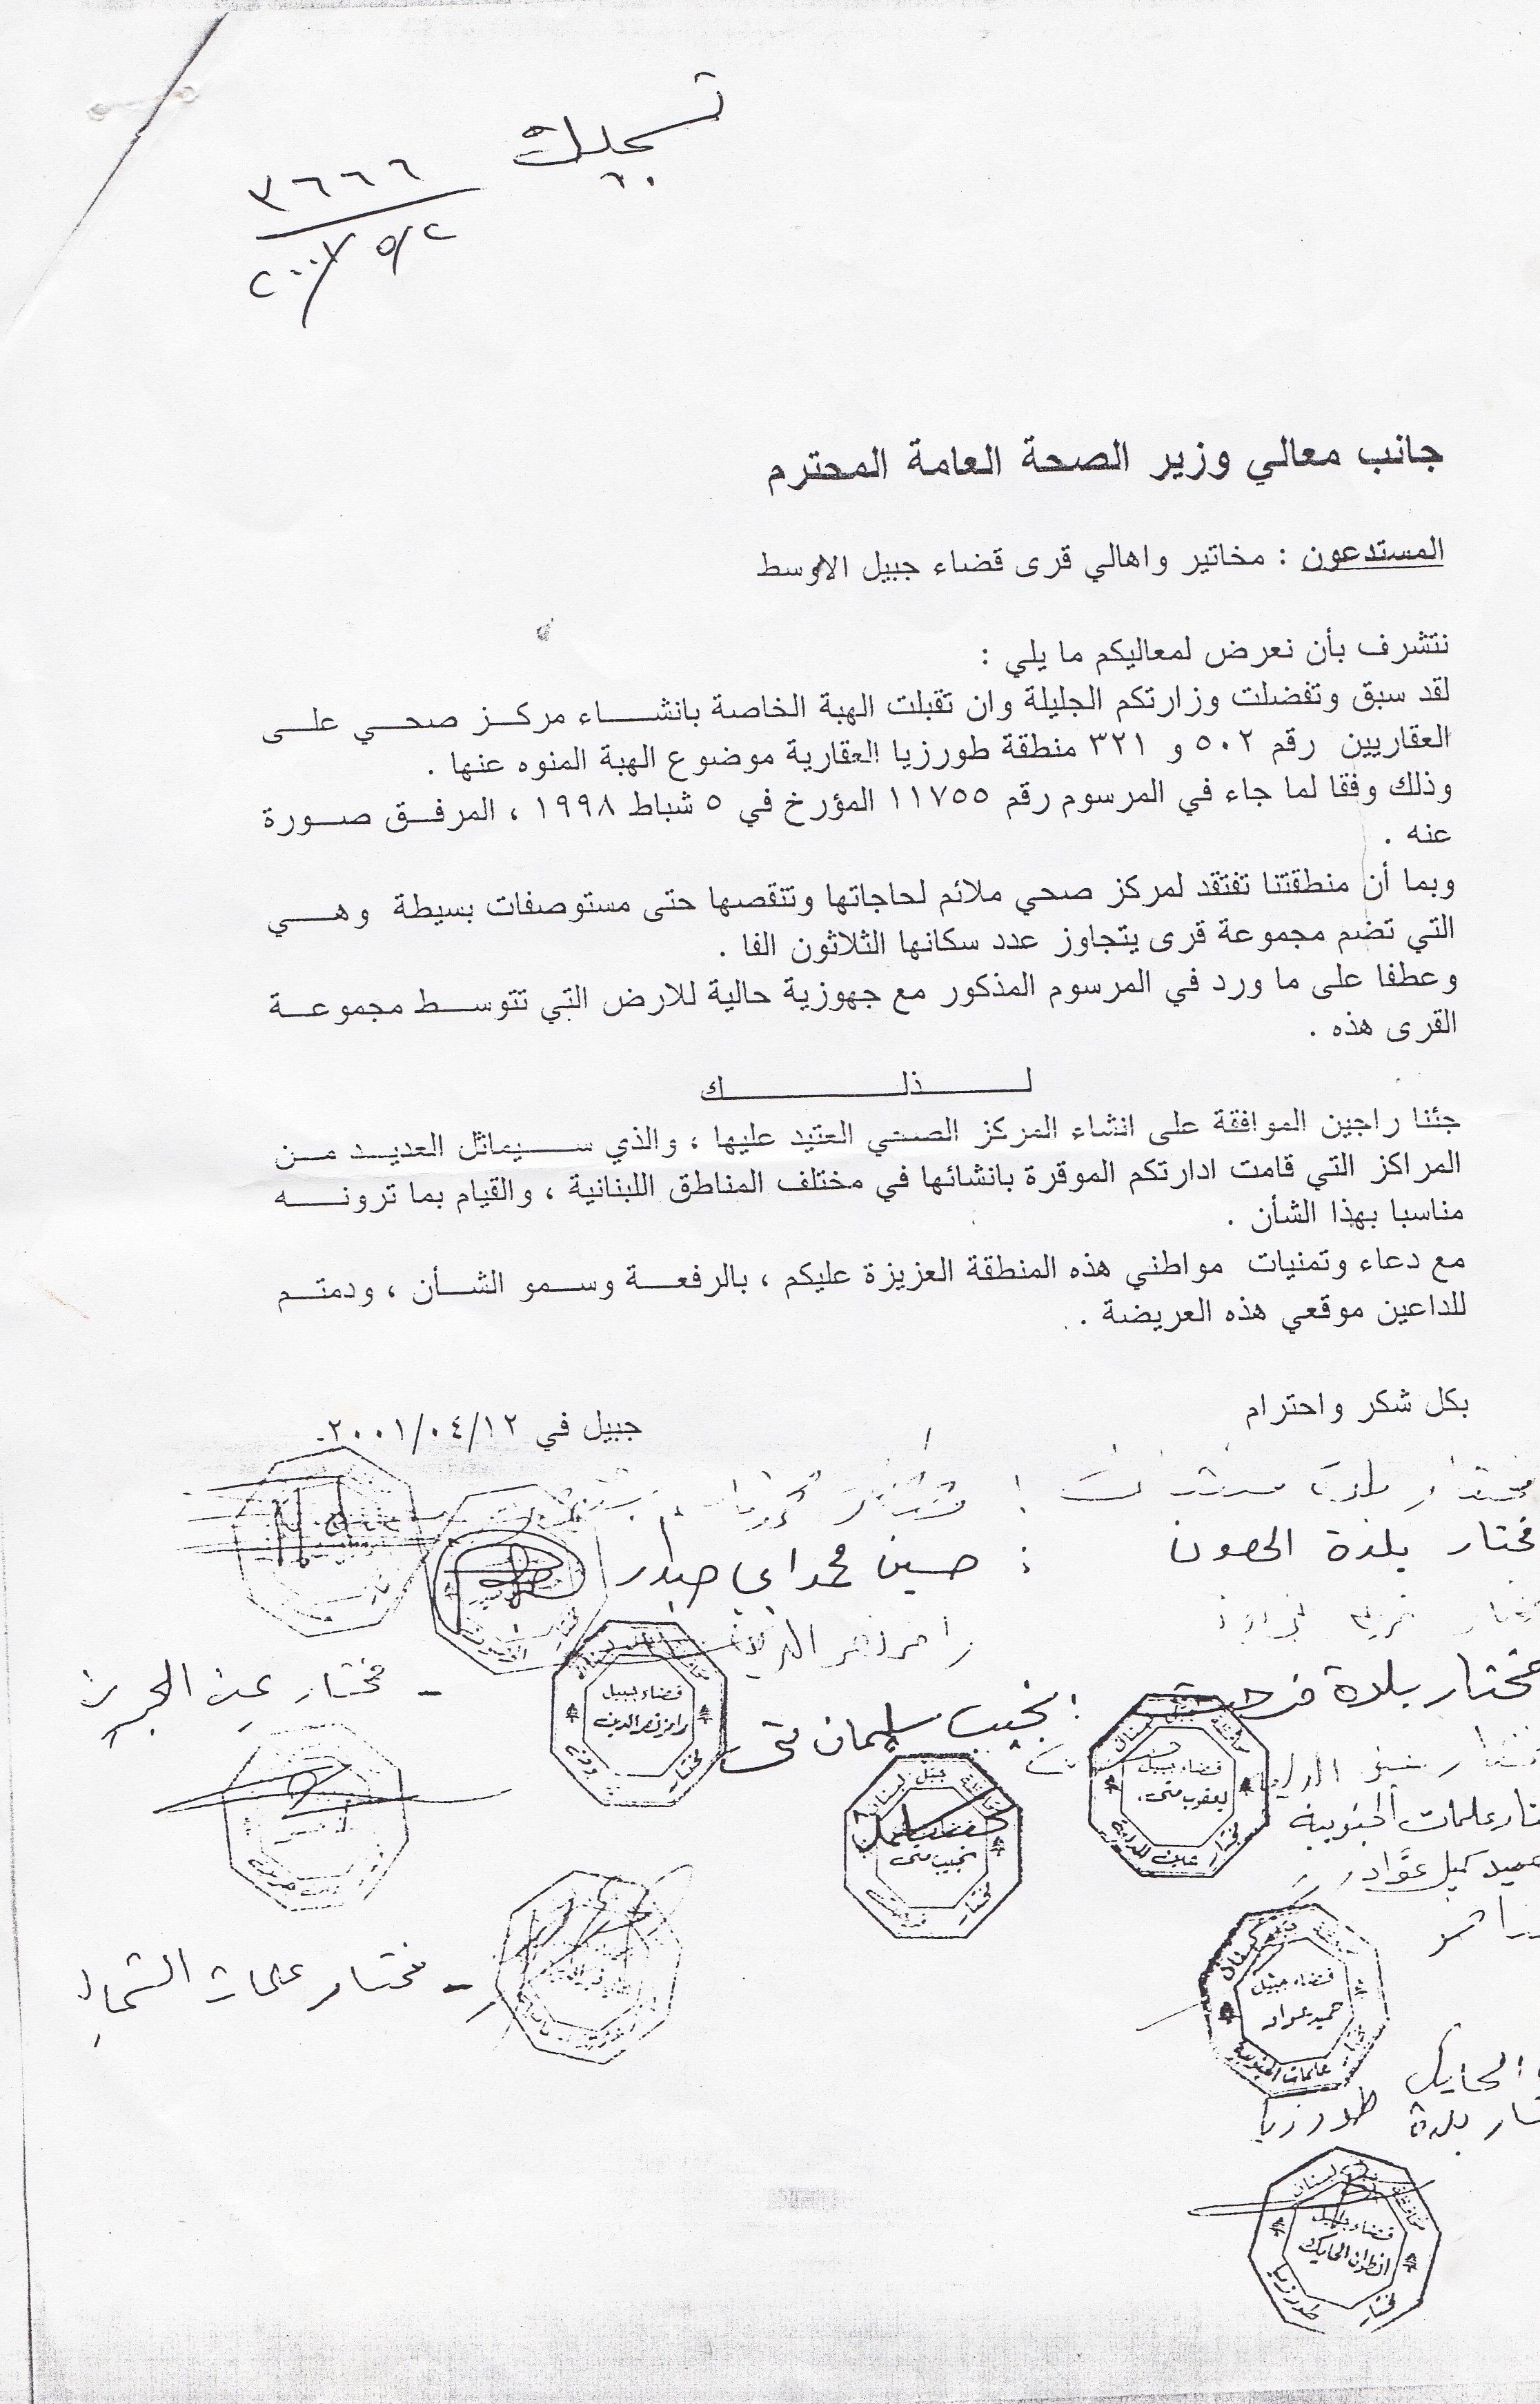 تسجيل
٣٦٦٦
٥/٢
جانب معالي وزير الصحة العامة المحترم
المستدعون : مخاتير واهالي قرى قضاء جبيل الاوسط
نتشرف بأن نعرض لمعاليكم ما يلي :
لقد سبق وتفضلت وزارتكم الجليلة وان تقبلت الهبة الخاصة بانشاء مركز صحي على
العقاريين رقم ٥٠٢ و ٣٢١ منطقة طورزيا العقارية موضوع الهبة المنوه عنها .
وذلك وفقا لما جاء في المرسوم رقم ١١٧٥٥ المؤرخ في ٥ شباط ١٩٩٨ ، المرفق صورة
عنه .
وبما أن منطقتنا تفتقد لمركز صحي ملائم لحاجاتها وتنقصها حتى مستوصفات بسيطة وهي
التي تضم مجموعة قرى يتجاوز عدد سكانها الثلاثون الفا .
وعطفا على ما ورد في المرسوم المذكور مع جهوزية حالية للارض التي تتوسط مجموعة
القرى هذه .
لذلك
جئنا راجين الموافقة على انشاء المركز الصحي العتيد عليها ، والذي سيماثل العديد من
المراكز التي قامت ادارتكم الموقرة بانشائها في مختلف المناطق اللبنانية ، والقيام بما ترونه
مناسبا بهذا الشأن .
مع دعاء وتمنيات مواطني هذه المنطقة العزيزة عليكم ، بالرفعة وسمو الشأن ، ودمتم
للداعين موقعي هذه العريضة .
بكل شكر واحترام
جبيل في ٢٠٠١/٠٤/١٢.
مختار بلدة
مختار بلدة الحصون : حسين محمد ابي حيدر
رامز نصر الدين
مختار بلدة فرحت : نجيب سليمان متى
- مختار عين الجرين
قضاء جبيل
رامز نصر الدين
مختار
قضاء جبيل
يعقوب متى
مختار
علمات الجنوبية
حميد كميل عواد
نجيب متى
مختار
- مختار علمات الشمالية
قضاء جبيل
حميد عواد
علمات الجنوبية
الحايك
بلدة طورزيا
قضاء جبيل
انطوان الحايك
مختار
طورزيا